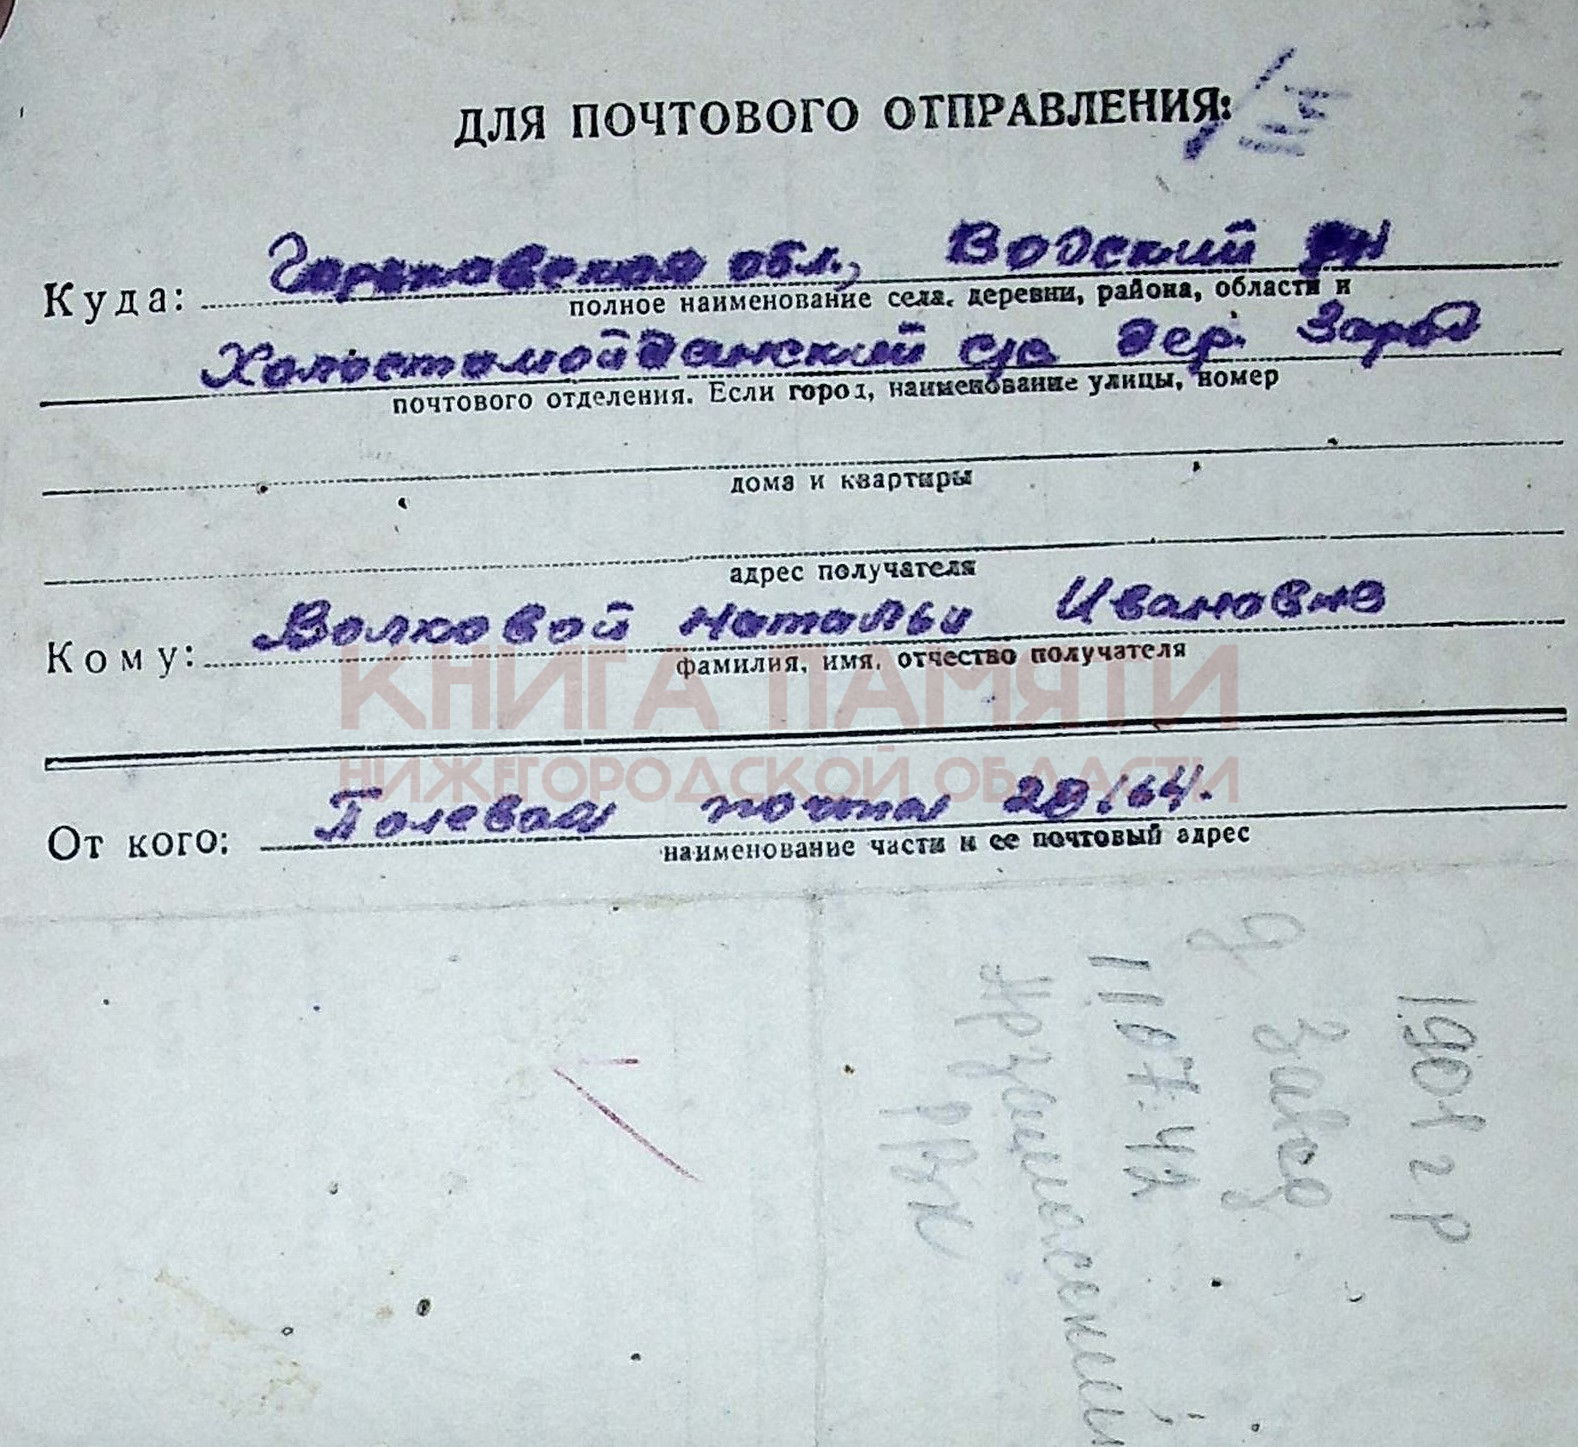 ДЛЯ ПОЧТОВОГО ОТПРАВЛЕНИЯ:
Куда: Горьковская обл., Водский рн
полное наименование села, деревни, района, области и
Холостомойданский с/с дер.
почтового отделения. Если город, наименование улицы, номер
дома и квартиры
адрес получателя
Кому: Волковой Натальи Ивановне
фамилия, имя, отчество получателя
КНИГА ПАМЯТИ
НИЖЕГОРОДСКОЙ ОБЛАСТИ
От кого: Полевая почта 20164.
наименование части и ее почтовый адрес
1901 г р
11 07.42
Арзамасский
РВК